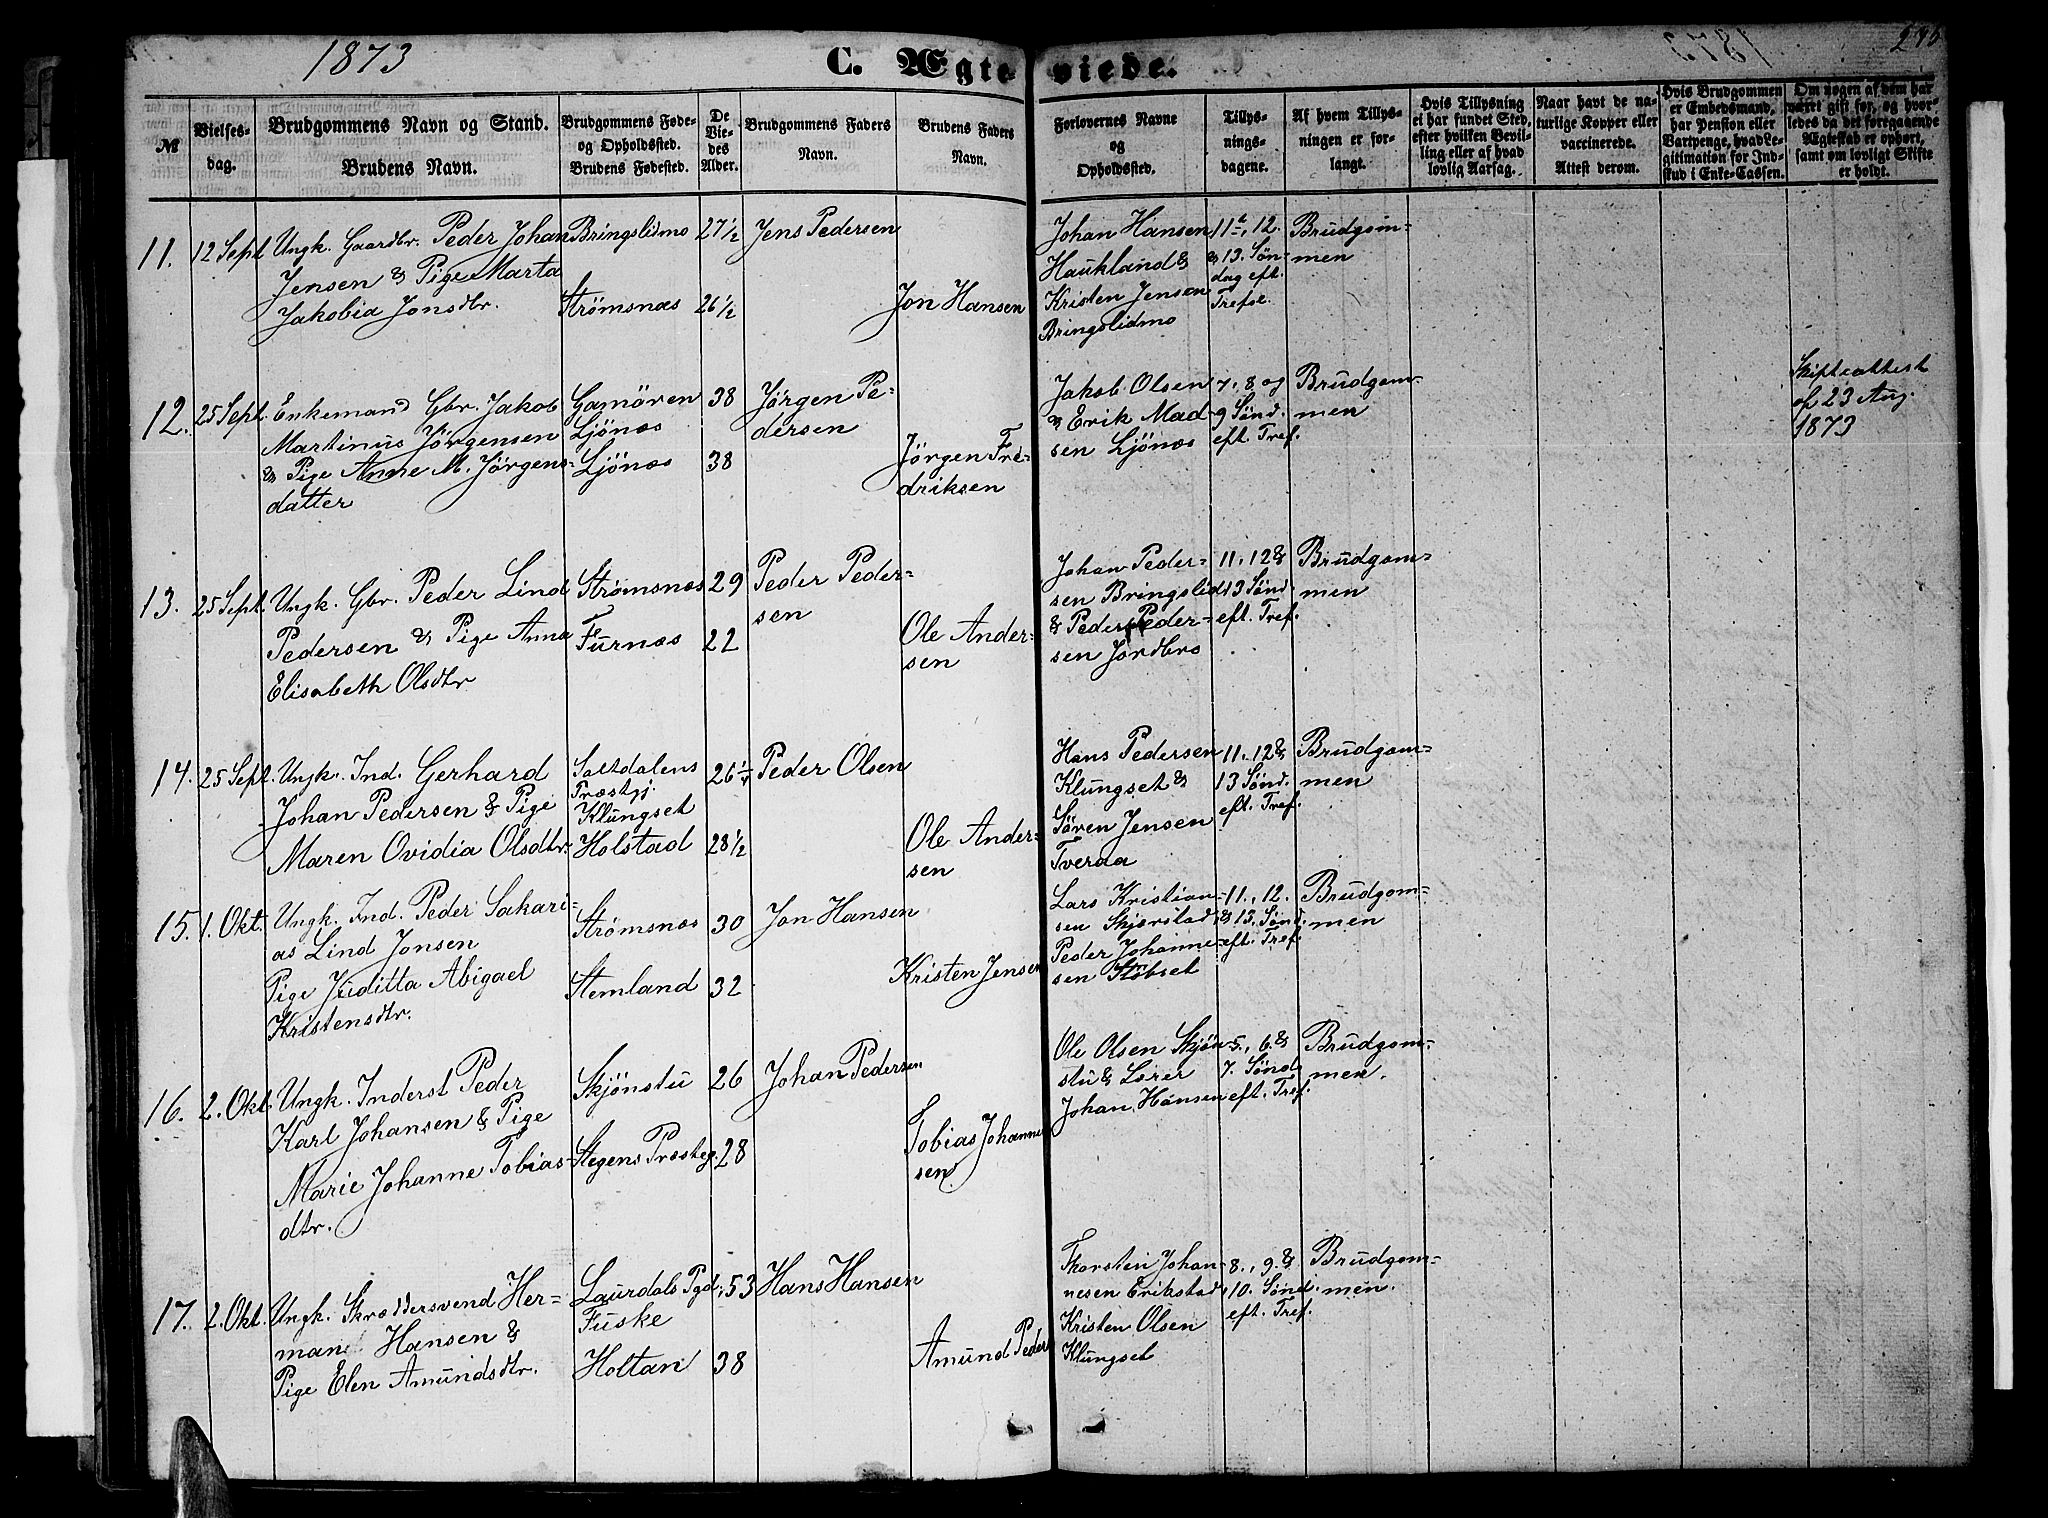 1873
C. Ægteviede.
№
Vielses-
dag.
Brudgommens Navn og Stand.
Brudens Navn.
Brudgommens Føde-
og Opholdssted.
Brudens Fødested.
De
Vie-
des
Alder.
Brudgommens Faders
Navn.
Brudens Faders
Navn.
Forlovernes Navne
og
Opholdssted.
Tillys-
nings-
dagene.
Af hvem Tillys-
ningen er for-
langt.
Hvis Tillysning
ei har fundet Sted,
efter hvilken Bevil-
ling eller af hvad
lovlig Aarsag.
Naar havt de na-
turlige Kopper eller
vaccinerede.
Attest derom.
Hvis Brudgommen
er Embedsmand,
har Pension eller
Vartpenge, hvad Le-
gitimation for Ind-
skud i Enke-Cassen.
Om nogen af dem har
været gift før, og hvor-
ledes da det foregaaende
Ægteskab er ophørt,
samt om lovligt Skifte
er holdt.
11. 12 Sept Ungk. Gaardbr. Peder Johan
Jensen & Pige Marta
Jakobia Jonsdtr.
Bringslidmo 27 1/2 Jens Pedersen
Strømsnæs 26 1/2 Jon Hansen
Johan Hansen
Haukland &
Kristen Jensen
Bringslidmo
11te, 12.
& 13. Søn-
dag eft.
Trefoe.
Brudgom-
men
12. 25 Sept. Enkemand Gbr. Jakob
Martinus Jörgensen
& Pige Anne M. Jörgens-
datter
Gamören 38 Jörgen Pe-
Ljönæs dersen
Ljönæs 38 Jörgen Fre-
driksen
Jakob Olsen
& Erik Mad-
sen Ljönæs
7, 8 og
9 Sönd.
eft. Tref.
Brudgom-
men
Skifteattest
af 23 Aug.
1873
13. 25 Sept. Ungk. Gbr. Peder Lind
Pedersen & Pige Anna
Elisabeth Olsdtr
Strømsnæs 29 Peder Peder-
sen
Furnæs 22 Ole Ander-
sen
Johan Peder-
sen Bringslid
& Peder Peder-
sen Jordbro
11, 12 &
13 Sönd.
eft. Tref.
Brudgom-
men
14. 25 Sept. Ungk. Ind. Gerhard
Johan Pedersen & Pige
Maren Ovidia Olsdtr.
Saltdalens 26 1/4 Peder Olsen
Præstgj.
Klungset
Holstad 28 1/2 Ole Ander-
sen
Hans Pedersen
Klungset &
Sören Jensen
Tveraa
11., 12 &
13 Sönd.
eft. Tref.
Brudgom-
men
15. 1. Okt. Ungk. Ind. Peder Sakari-
as Lind Jonsen
Pige Juditta Abigael
Kristensdtr.
Strømsnæs 30 Jon Hansen
Stemland 32 Kristen Jensen
Lars Kristian-
sen Skjerstad
Peder Johanne-
sen Stöbset
11., 12.
& 13. Sönd.
eft. Tref.
Brudgom-
men
16. 2. Okt. Ungk. Inderst Peder
Karl Johansen & Pige
Marie Johanne Tobias-
dtr.
Skjönstu 26 Johan Pedersen
Stegens Præsteg. 28 Tobias Johanne
sen
Ole Olsen Skjön-
stu & Lærer
Johan Hansen
5., 6. &
7. Sönd
eft. Tref.
Brudgom-
men.
17. 2. Okt. Ungk. Skræddersvend Her-
man Hansen &
Pige Elen Amundsdtr.
Laurdals Pgd. 53 Hans Hansen
Fuske
Holtan 38 Amund Peders
Thorsten Johan-
nesen Erikstad
Kristen Olsen
Klungset
8., 9. &
10. Sönd.
eft. Tref.
Brudgom-
men.